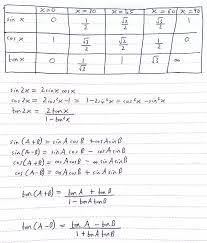 x=0 x=30 x=45 x=60 x=90
sin x 0 1/2 √2/2 √3/2 1
cos x 1 √3/2 √2/2 1/2 0
tan x 0 1 √3 ∞
sin2x = 2sinx cosx
cos2x = 2cos²x-1 = 1-2sin²x = cos²x - sin²x
tan2x = 2tanx / 1-tan²x
sin (A+B) = sinA cosB + cosA sinB
sin(A-B) = sinA cosB - cosA sinB
cos(A+B) = cosA cosB - sinA sinB
cos(A-B) = cosA cosB + sinA sinB
tan(A+B) = tanA + tanB / 1-tanA tanB
tan(A-B) = tanA - tanB / 1+tanA tanB